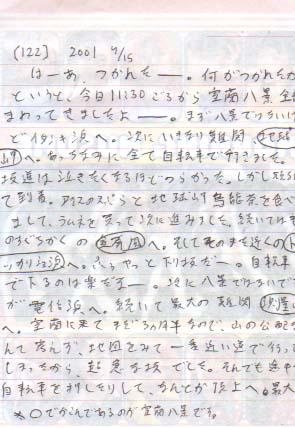 (122) 2001 9/15
はーあ、つかれたーー。何がつかれたか
というと、今日11:30ごろから室蘭八景全部
まわってきましたよーー。まず八景ではないけ
どイタンキ浜へ。次にいきなり難関、地球
岬へ。あっちなみに全て自転車で行きました。
坂道は泣きたくなるほどつらかった。しかし
て到着。アイスのスイカと地球岬
まして、ラムネを買って次に進みました。続いては
のすぐちかくの 金屏風へ。そしてそのまた近くのト
ッカリショ浜へ。ふぅ、やっと下り坂だー。自転車
で下るのは楽だなー。次に八景ではないで
が 電信浜へ。続いて最大の難関
へ。室蘭に来てまだ5カ月半なので、山の公配な
んて考えず、地図をみて一番近い道で行って
しまったから、超急な坂でした。それでも途中
自転車を押したりして、なんとか頂上へ。最大
※○でかこんであるのが室蘭八景です。